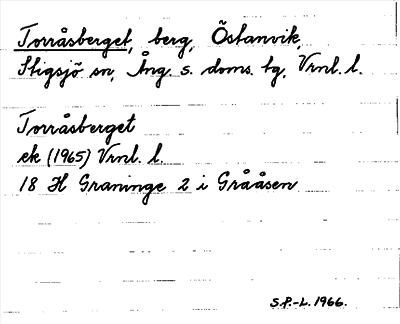 Torråsberget, berg, Östanvik,
Stigsjö sn, Ång. s. doms. tg, Vrnl. l.
Torråsberget
ek (1965) Vrnl. l.
18 H Graninge 2 i Grååsen
S.P.-L. 1966.